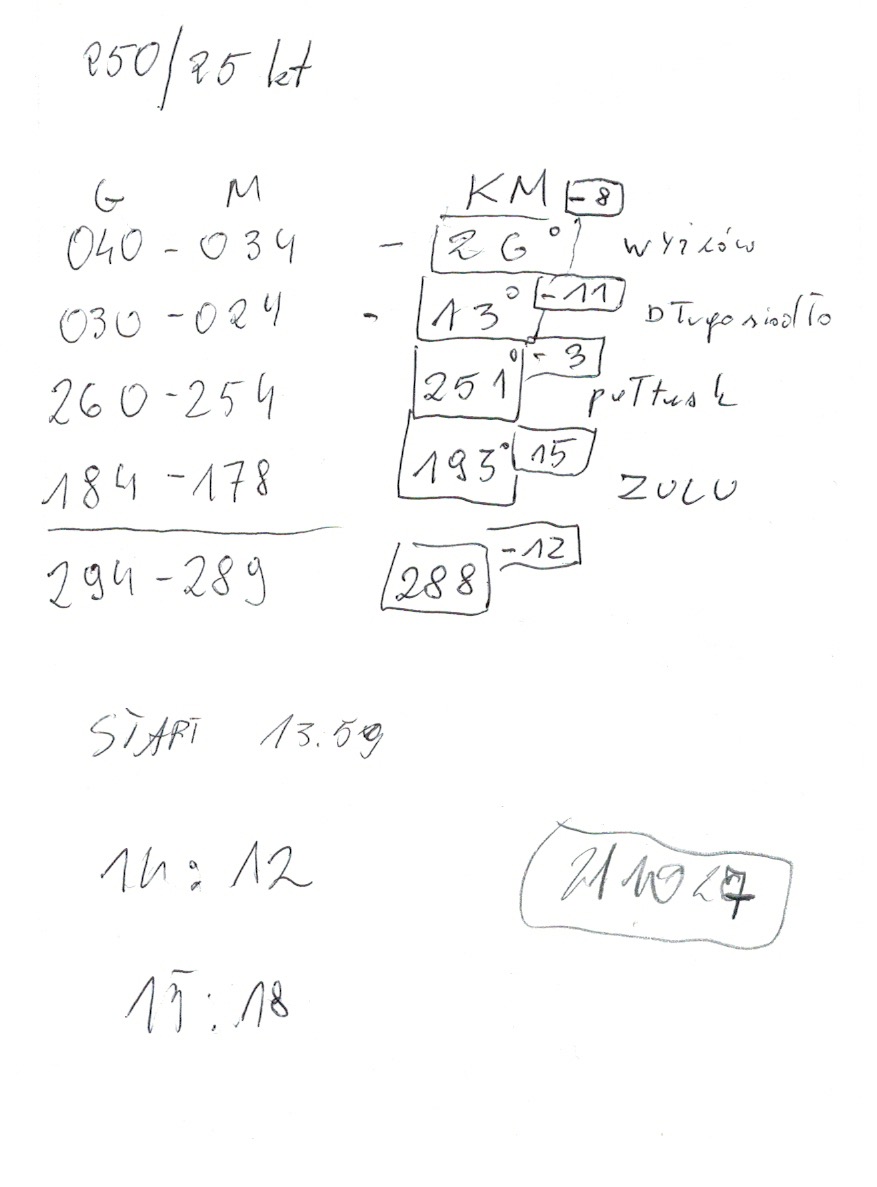 250/25 kt
G M KM -8
040 - 034 - 26° wyszków
030 - 024 - 13° -11 Długosiodło
260 - 254 251° -3 pułtusk
184 - 178 193° 15 ZULU
294 - 289 288 -12
START 13.59
14:12
15:18